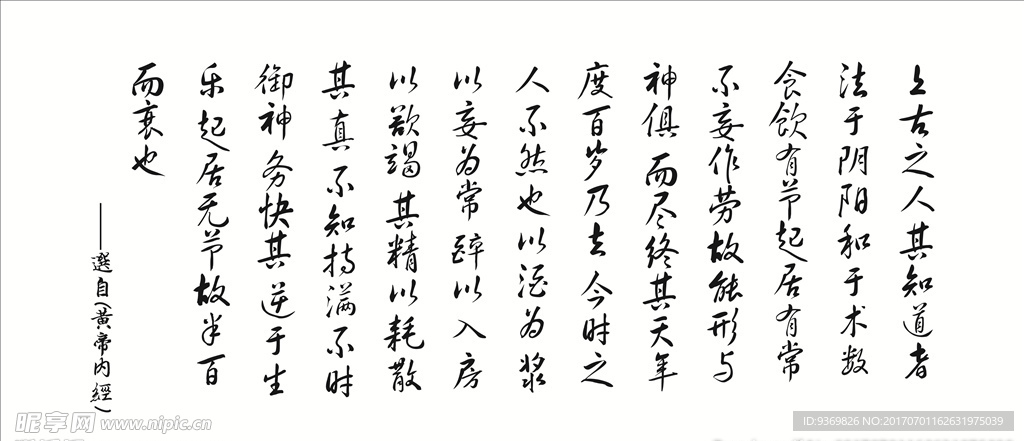 上古之人其知道者
法于阴阳和于术数
食飲有节起居有常
不妄作劳故能形与
神俱而尽终其天年
度百岁乃去今时之
人不然也以酒为浆
以妄为常醉以入房
以欲竭其精以耗散
其真不知持满不时
御神务快其逆于生
乐起居无节故半百
而衰也
——選自(黄帝内經)
昵享网 www.nipic.cn
ID:9369826 NO:20170701162631975039